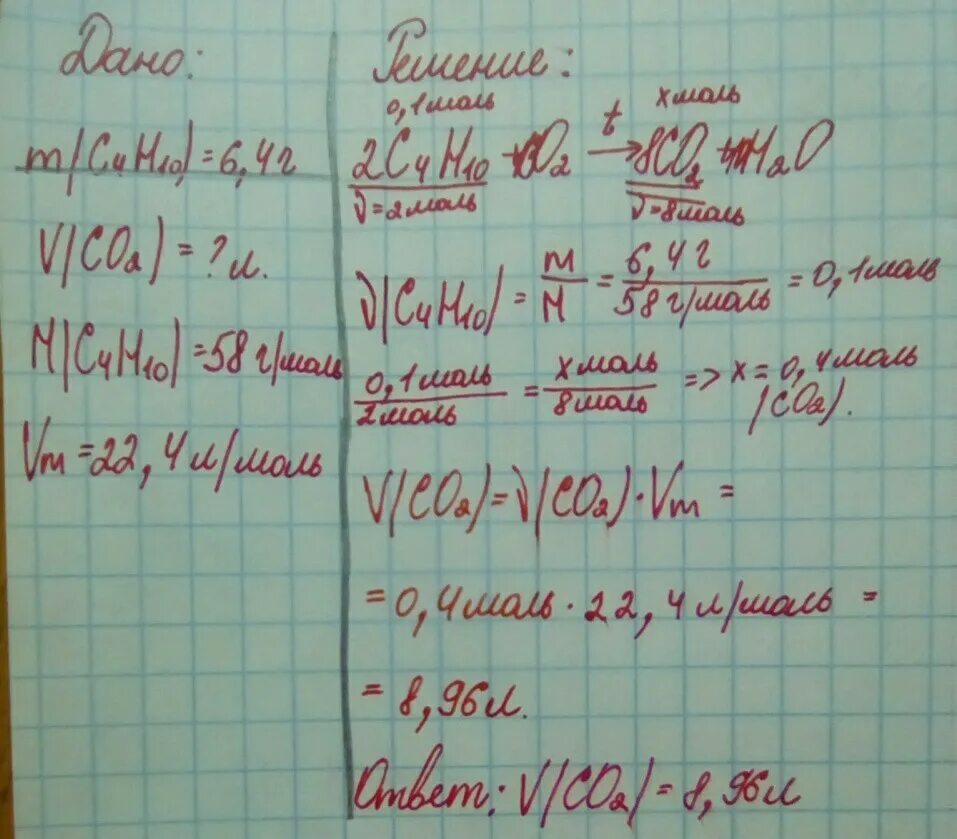 Дано:
m(C4H10)=6,4г
V(CO2)=?л.
M(C4H10)=58г/моль
Vm=22,4л/моль
Решение:
0,1моль xмоль
2C4H10 + O2 t→ 8CO2 + H2O
ν=2моль ν=8моль
ν(C4H10) = m/M = 6,4г/58г/моль = 0,1моль
0,1моль/2моль = xмоль/8моль => x=0,4моль
(CO2).
V(CO2)=ν(CO2)·Vm =
=0,4моль·22,4л/моль =
= 8,96л.
Ответ: V(CO2)=8,96л